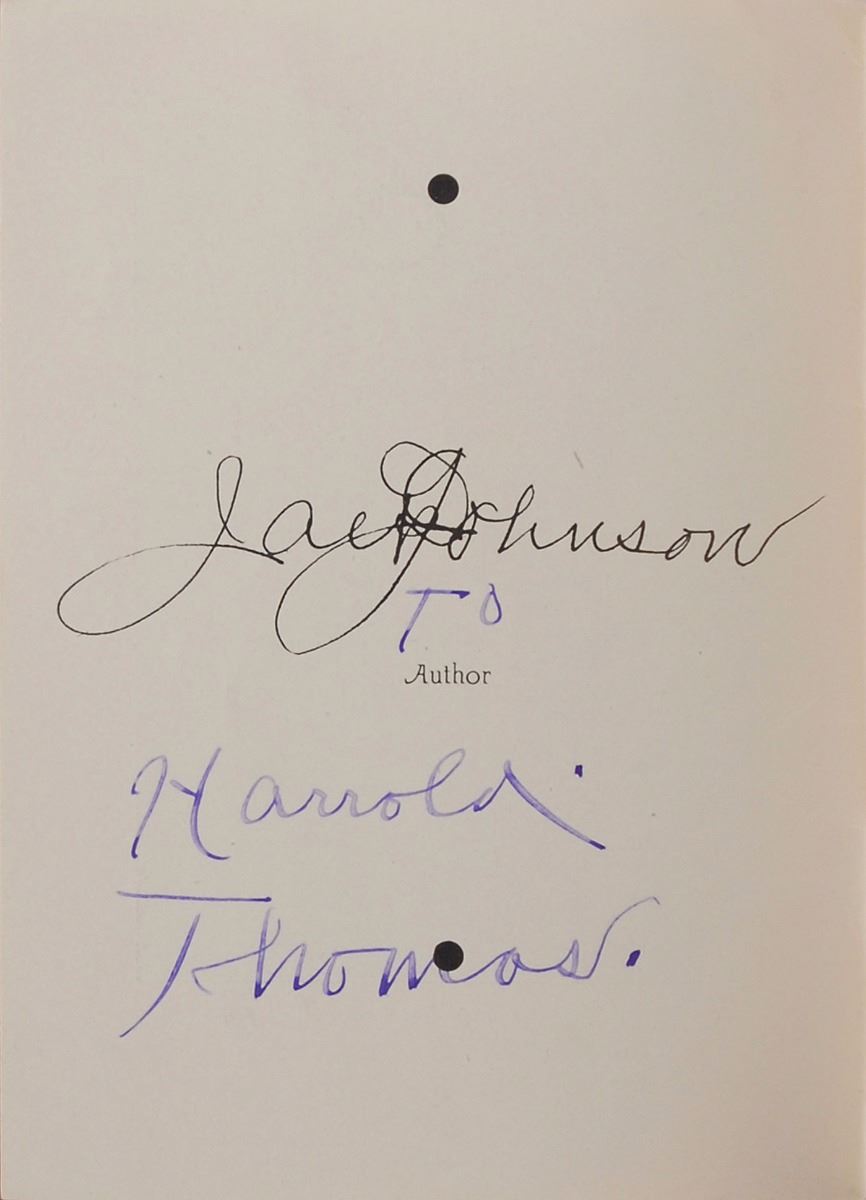 Jack Johnson
To
Author
Harrold.
Thomas.